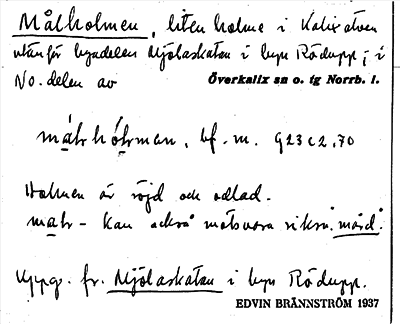 Målholmen, liten holme i Kalixälven
utanför byadelen Mjölaskatan i byn Rödupp, i
No. delen av Överkalix sn o. tg Norrb. l.
bf. m. 923 c 2, 70
Holmen är röjd och odlad.
kan också motsvara riksspr. mård.
Uppg. fr. Mjölaskatan i byn Rödupp.
EDVIN BRÄNNSTRÖM 1937